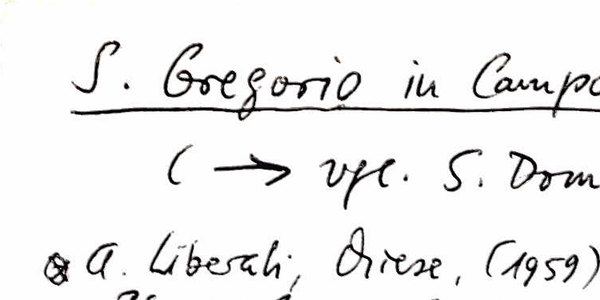 S. Gregorio in Campo
( → vgl. S. Dom
A. Liberali, Oriese, (1959)